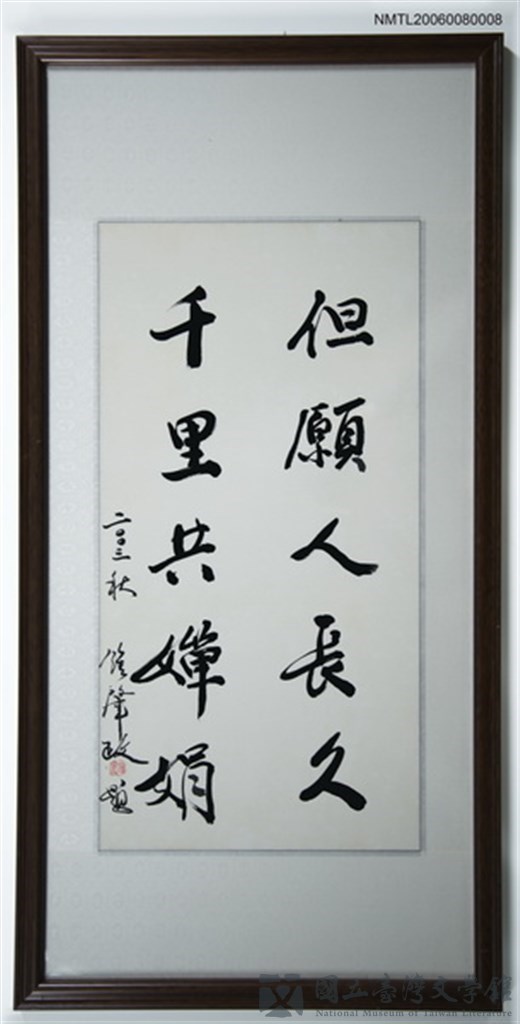 NMTL20060080008
但願人長久
千里共嬋娟
二〇〇三秋 鍾肇政題
國立臺灣文學館
National Museum of Taiwan Literature